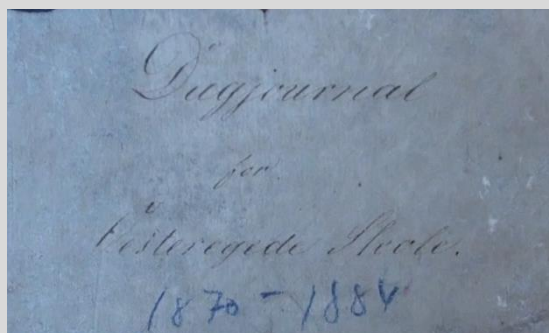 Dagjournal
for
Vesteregede Skole.
1870 - 1884